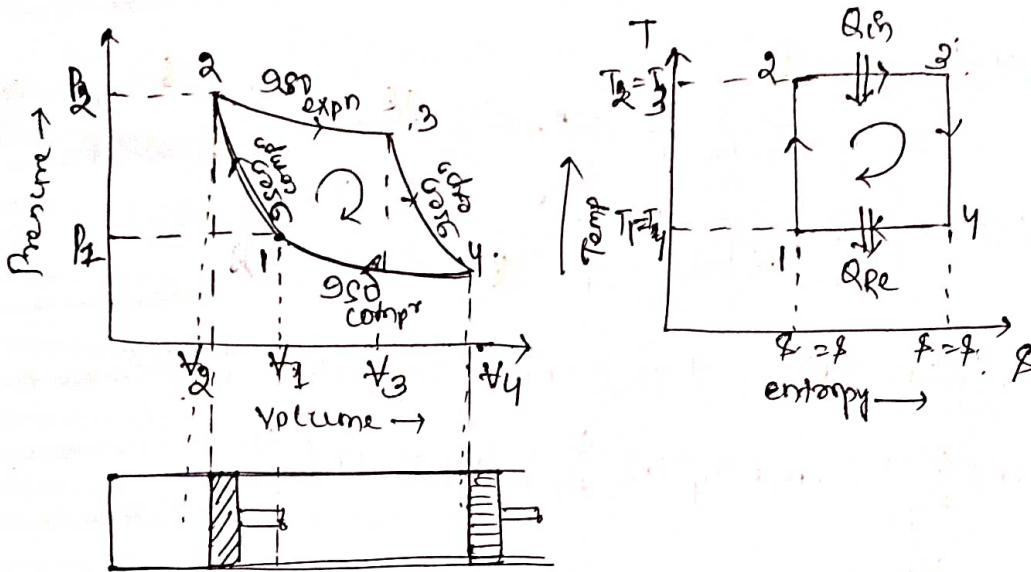 Pressure →
P2
P1
2
ISO expn
3
Isen compn
Isen expn
1
4
ISO compn
V2
V1
V3
V4
Volume →
T
Qin
T2=T3
2
3
Temp
T1=T4
1
4
QRe
S = S
S = S
S
entropy →